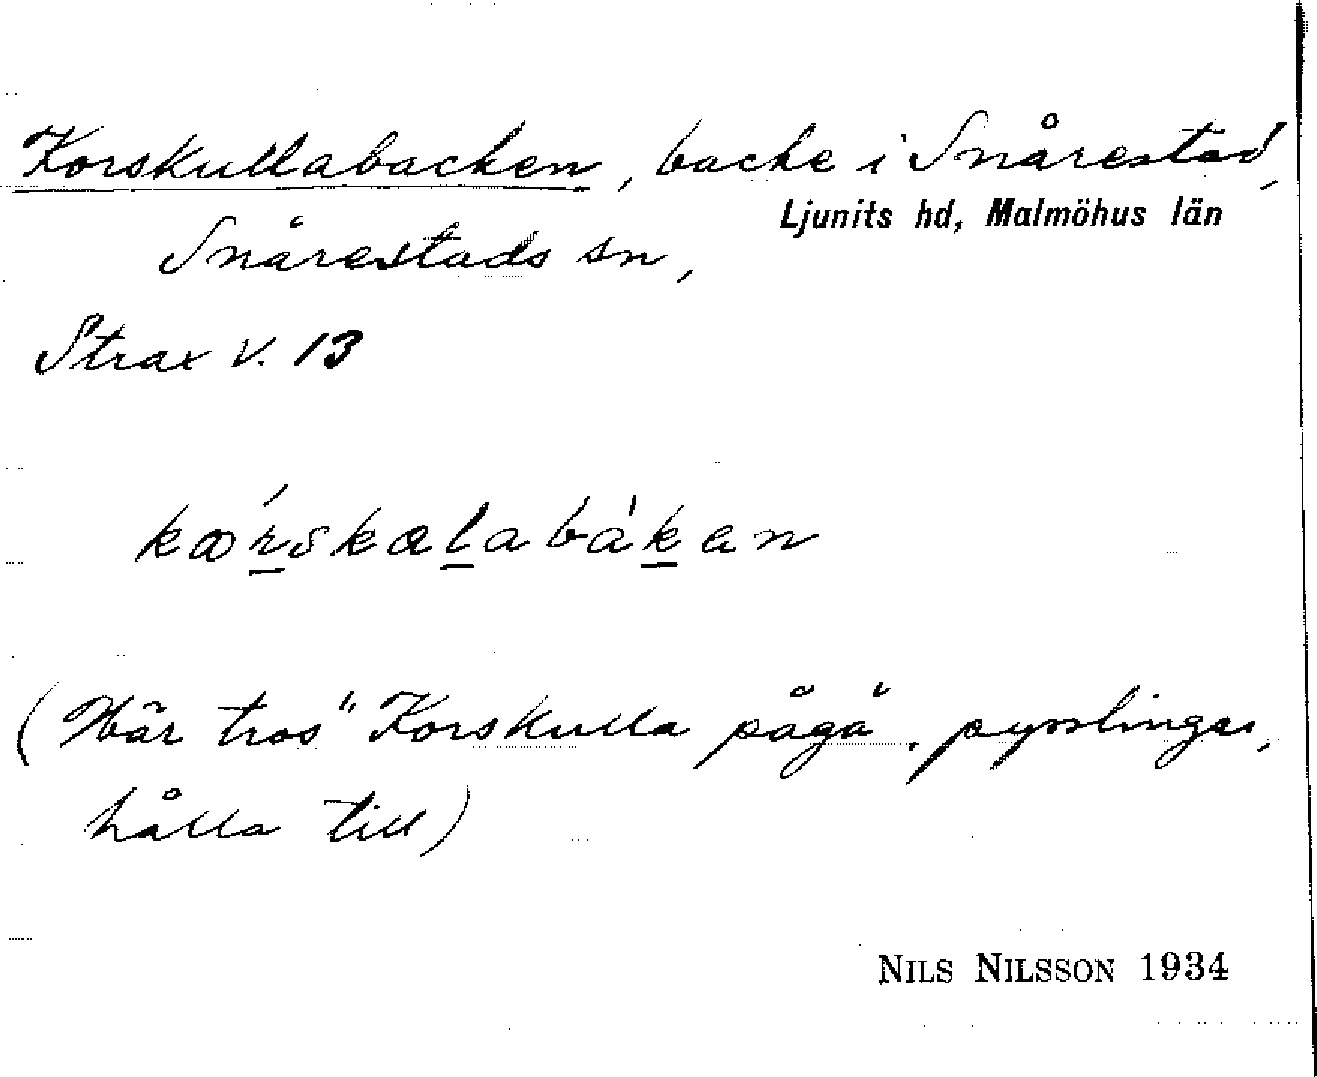 Korskullabacken, backe i Snårestad,
Ljunits hd, Malmöhus län
Snårestads sn,
Strax V. 13
(Här tros "Korskulla pågå", pysslingar,
hålla till)
NILS NILSSON 1934